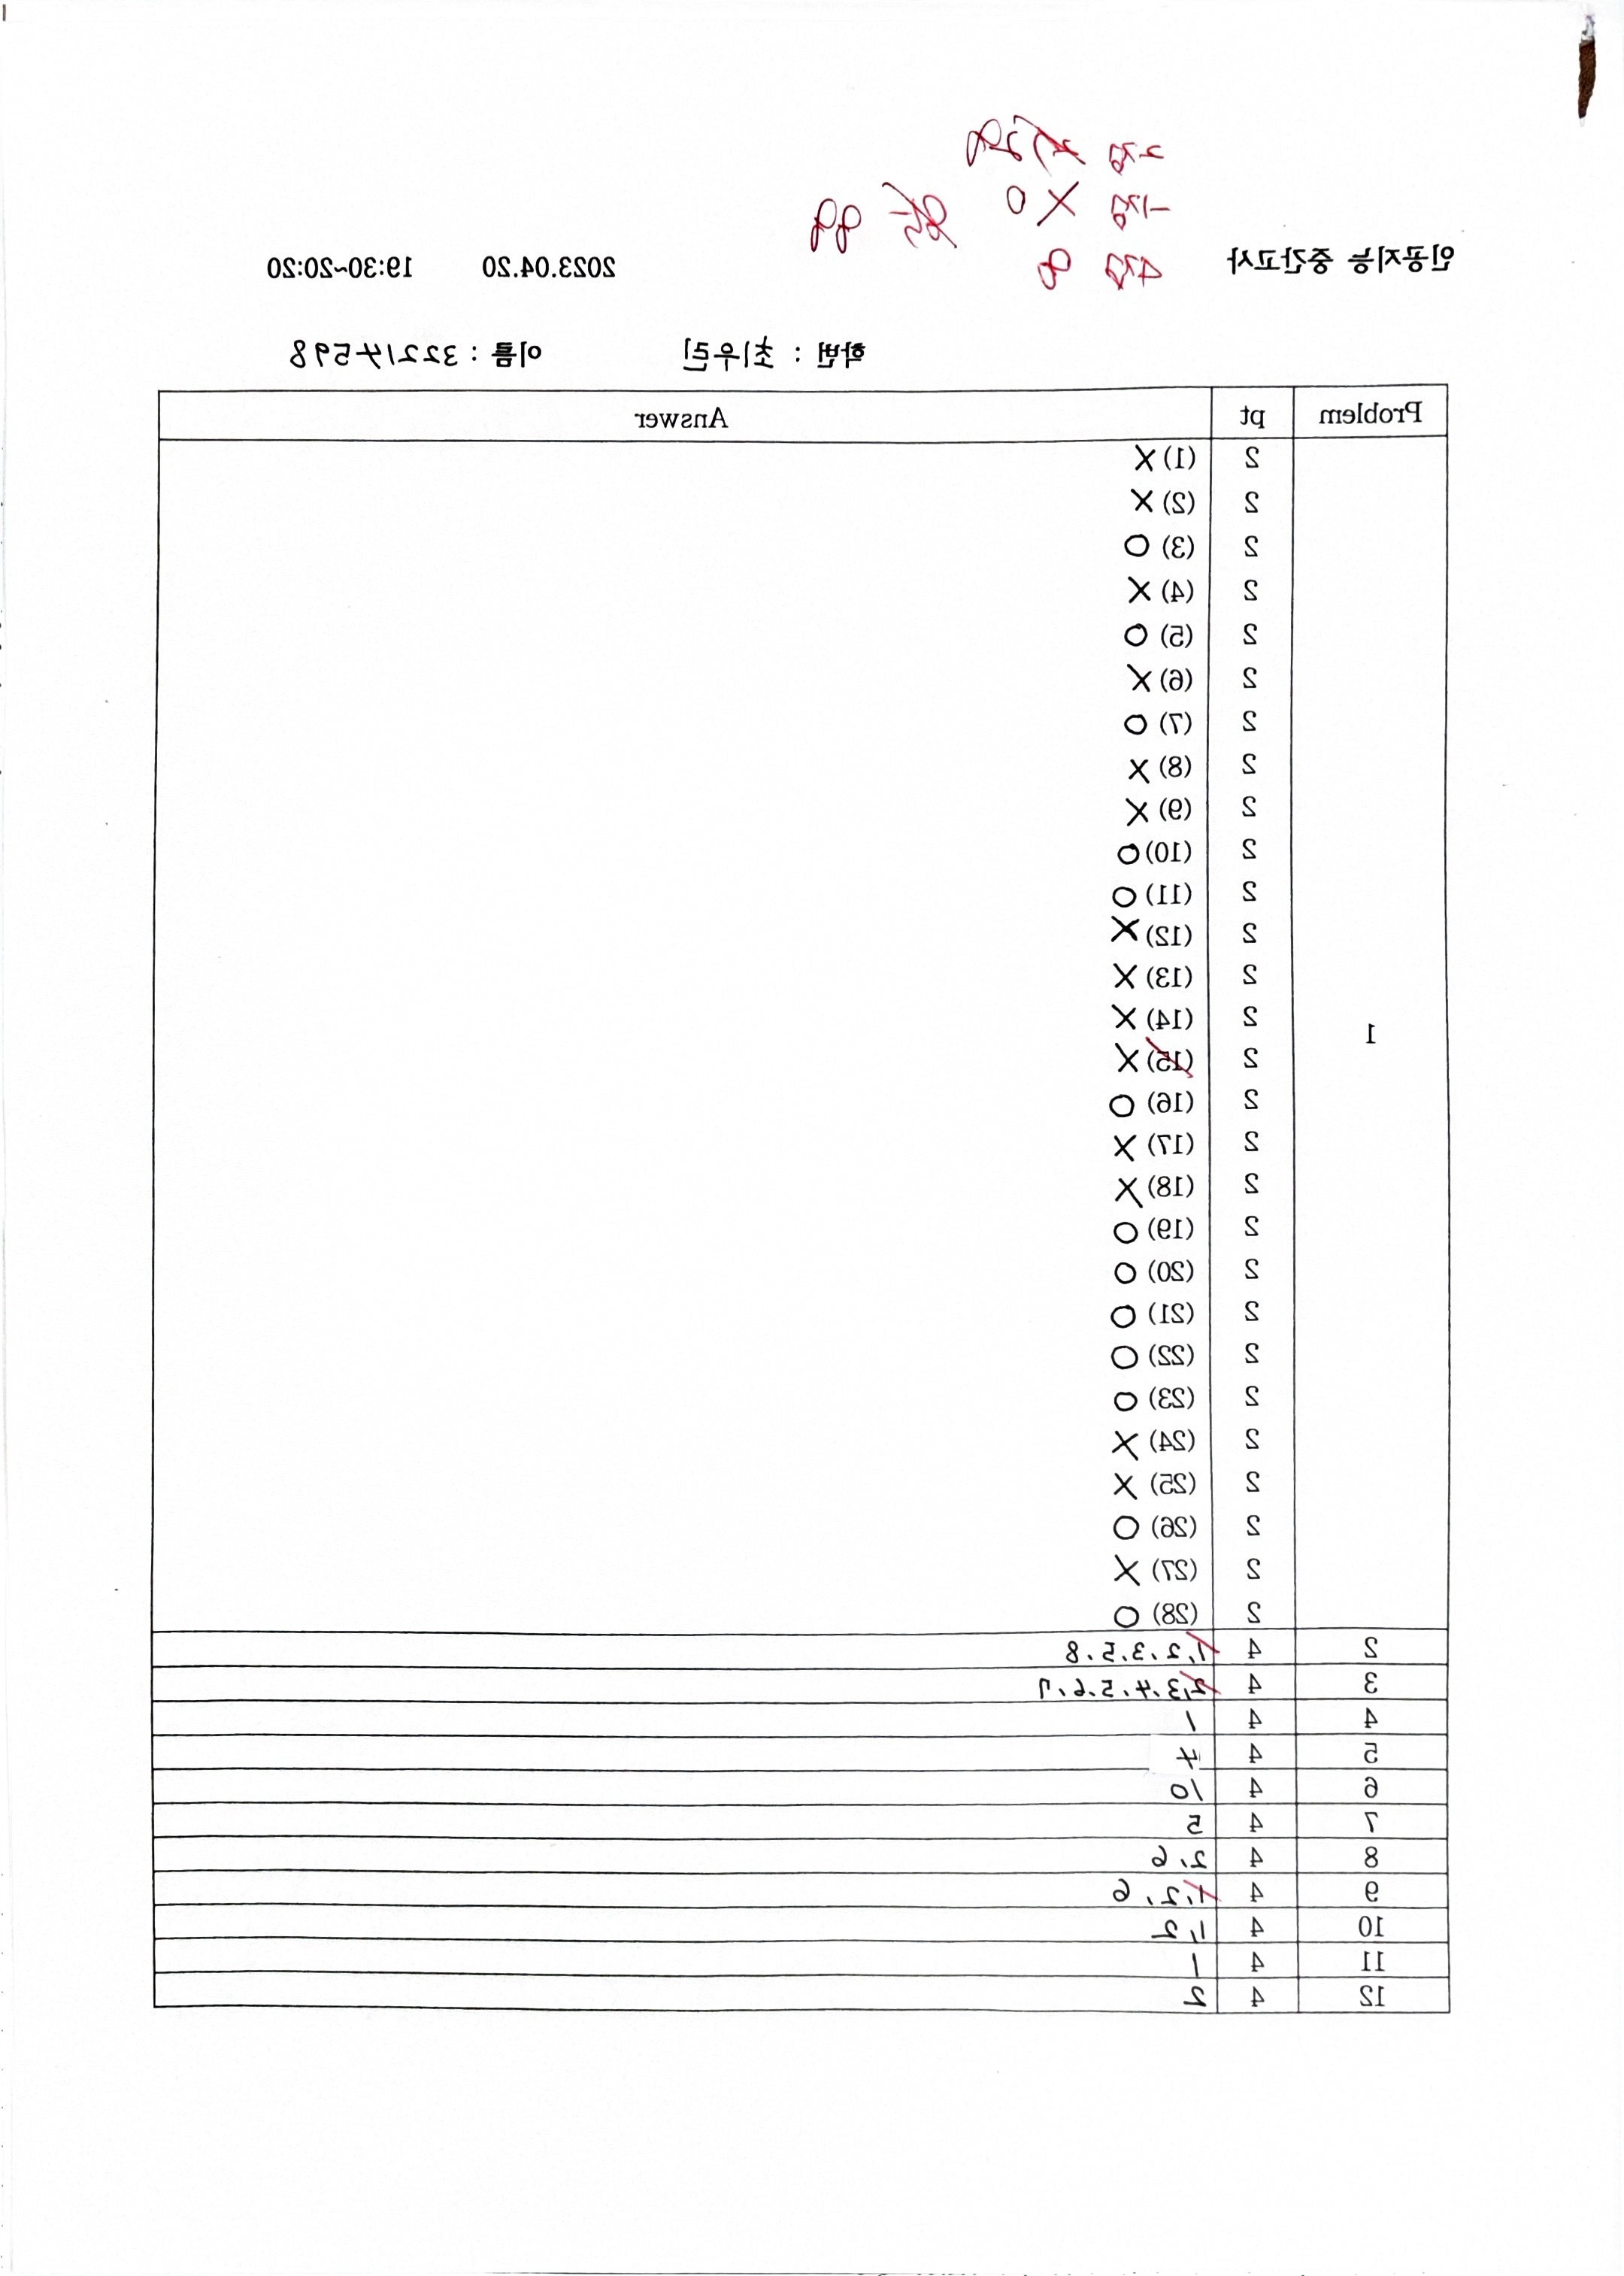 2점 29
-1점 X 0
4점 8 88
인공지능 중간고사 2023.04.20 19:30~20:20
학번 : 최우린 이름 : 32214598
Problem pt Answer
1
2 (1) X
2 (2) X
2 (3) O
2 (4) X
2 (5) O
2 (6) X
2 (7) O
2 (8) X
2 (9) X
2 (10) O
2 (11) O
2 (12) X
2 (13) X
2 (14) X
2 (15) X
2 (16) O
2 (17) X
2 (18) X
2 (19) O
2 (20) O
2 (21) O
2 (22) O
2 (23) O
2 (24) X
2 (25) X
2 (26) O
2 (27) X
2 (28) O
2 4 1, 2, 3, 5, 8
3 4 2, 3, 4, 5, 6, 7
4 4 1
5 4 4
6 4 10
7 4 5
8 4 2, 6
9 4 1, 2, 6
10 4 1, 2
11 4 1
12 4 2